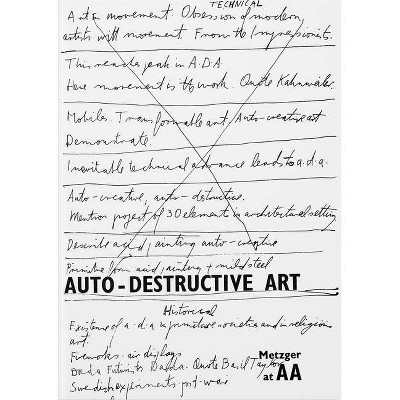 TECHNICAL
Art in movement. Obsession of modern
artists with movement From the Impressionists.
This reaches peak in A.D.A
Here movement is the work. Quote Kahnweiler.
Mobiles. Transformable art / Auto-creative art
Demonstrate.
Inevitable technical advance leads to a.d.a.
Auto-creative, auto-destructive.
Mention project of 30 element in architectural setting
Describe acid painting auto-creative
Primitive form acid painting + mild steel
AUTO-DESTRUCTIVE ART
Historical
Existence of a.d.a in primitive societies and in religious
art.
Fireworks. air displays
Dada Futurists Dada. Quote Basil Taylor
Swedish experiments post-war
Metzger
at AA